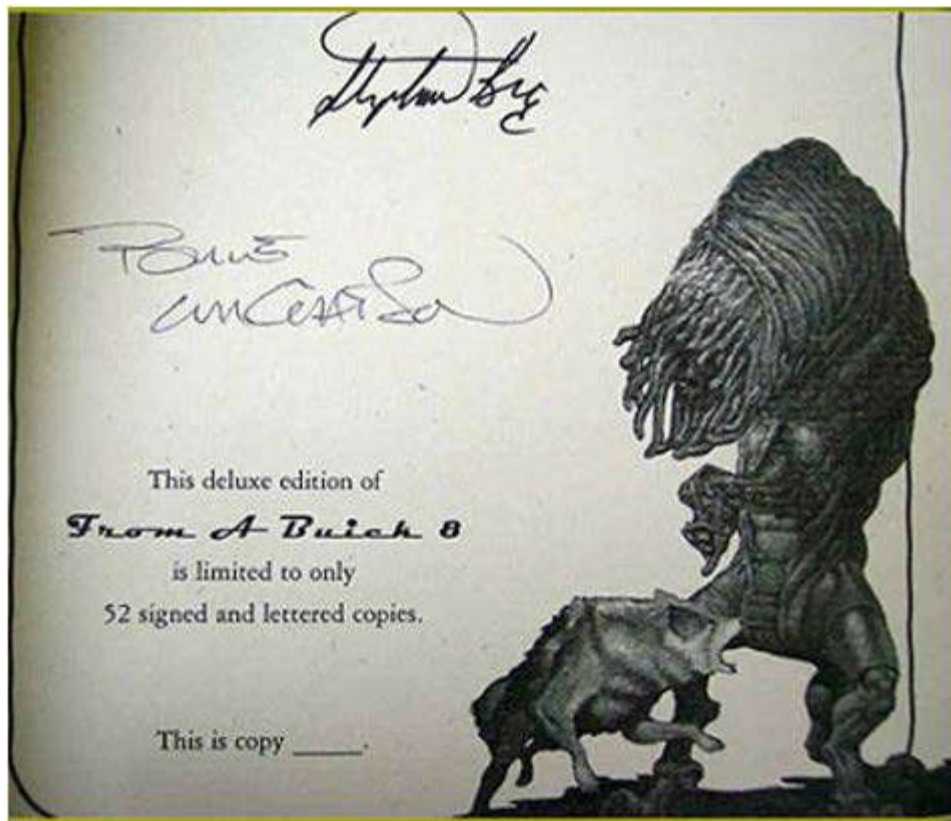 Stephen King
This deluxe edition of
From A Buick 8
is limited to only
52 signed and lettered copies.
This is copy _____.